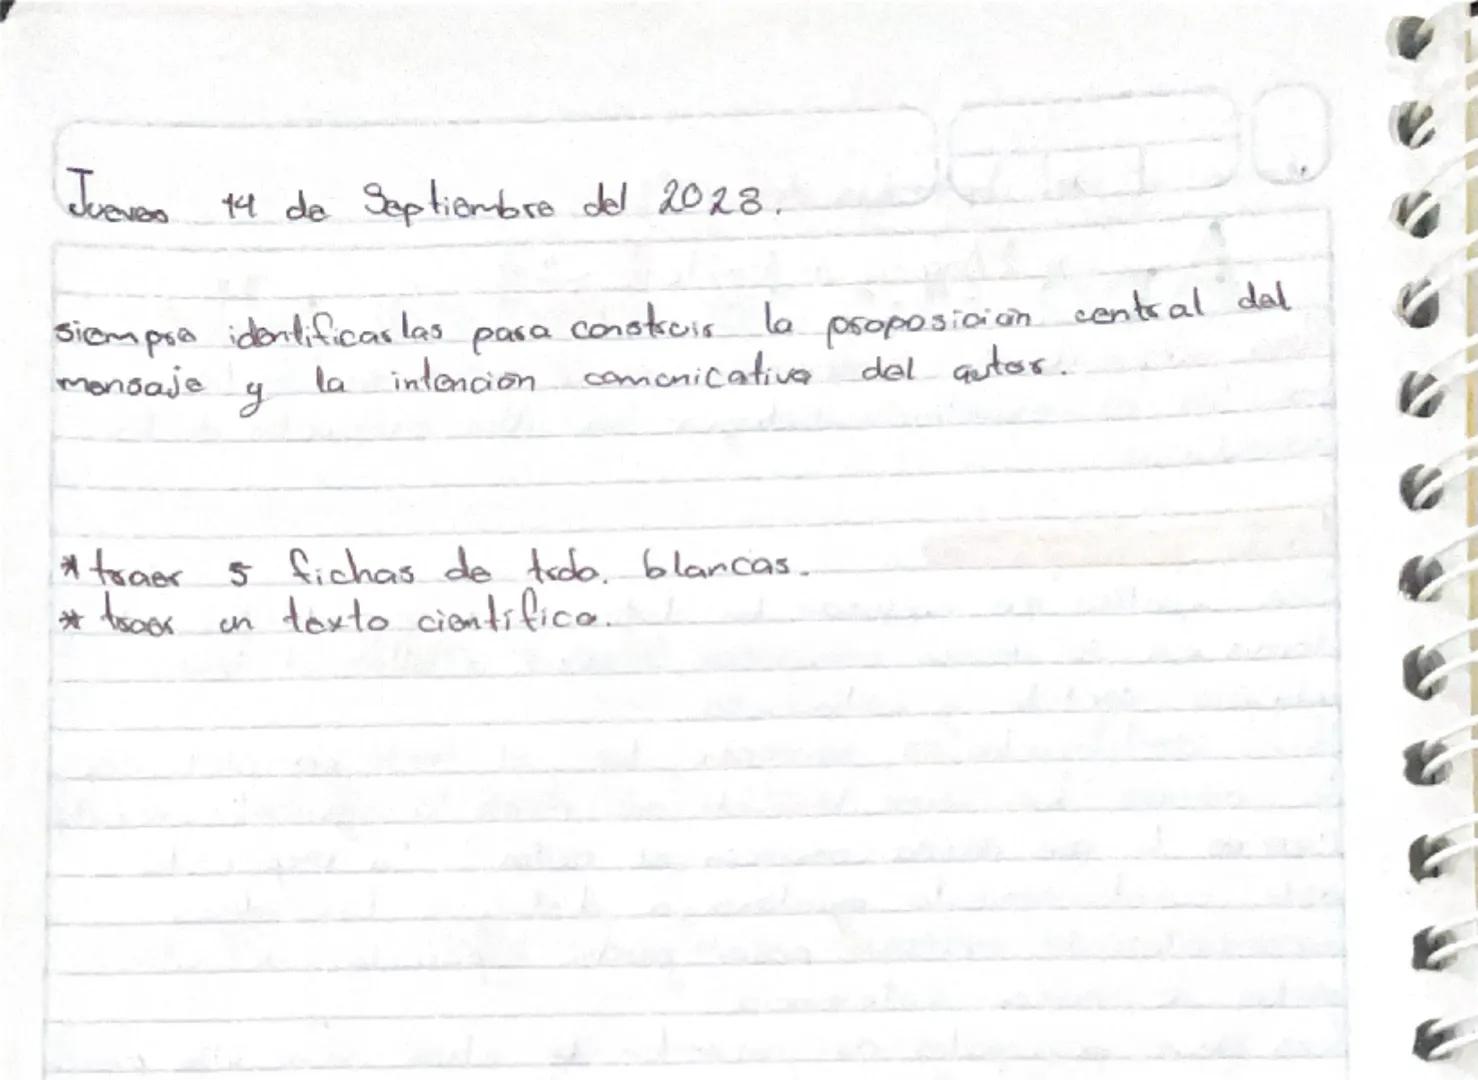 Jueves 14 de Septiembre del 2023.
siempre identificarlas para construir la proposición central del
mensaje y la intención comunicativa del autor.
* traer 5 fichas de trdo. blancas.
* traer un texto científico.